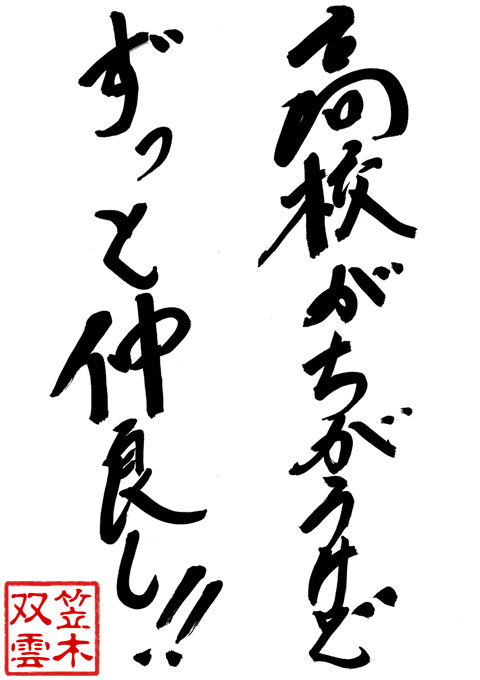 高校がちがうけど
ずっと仲良し!!
笠木
双雲